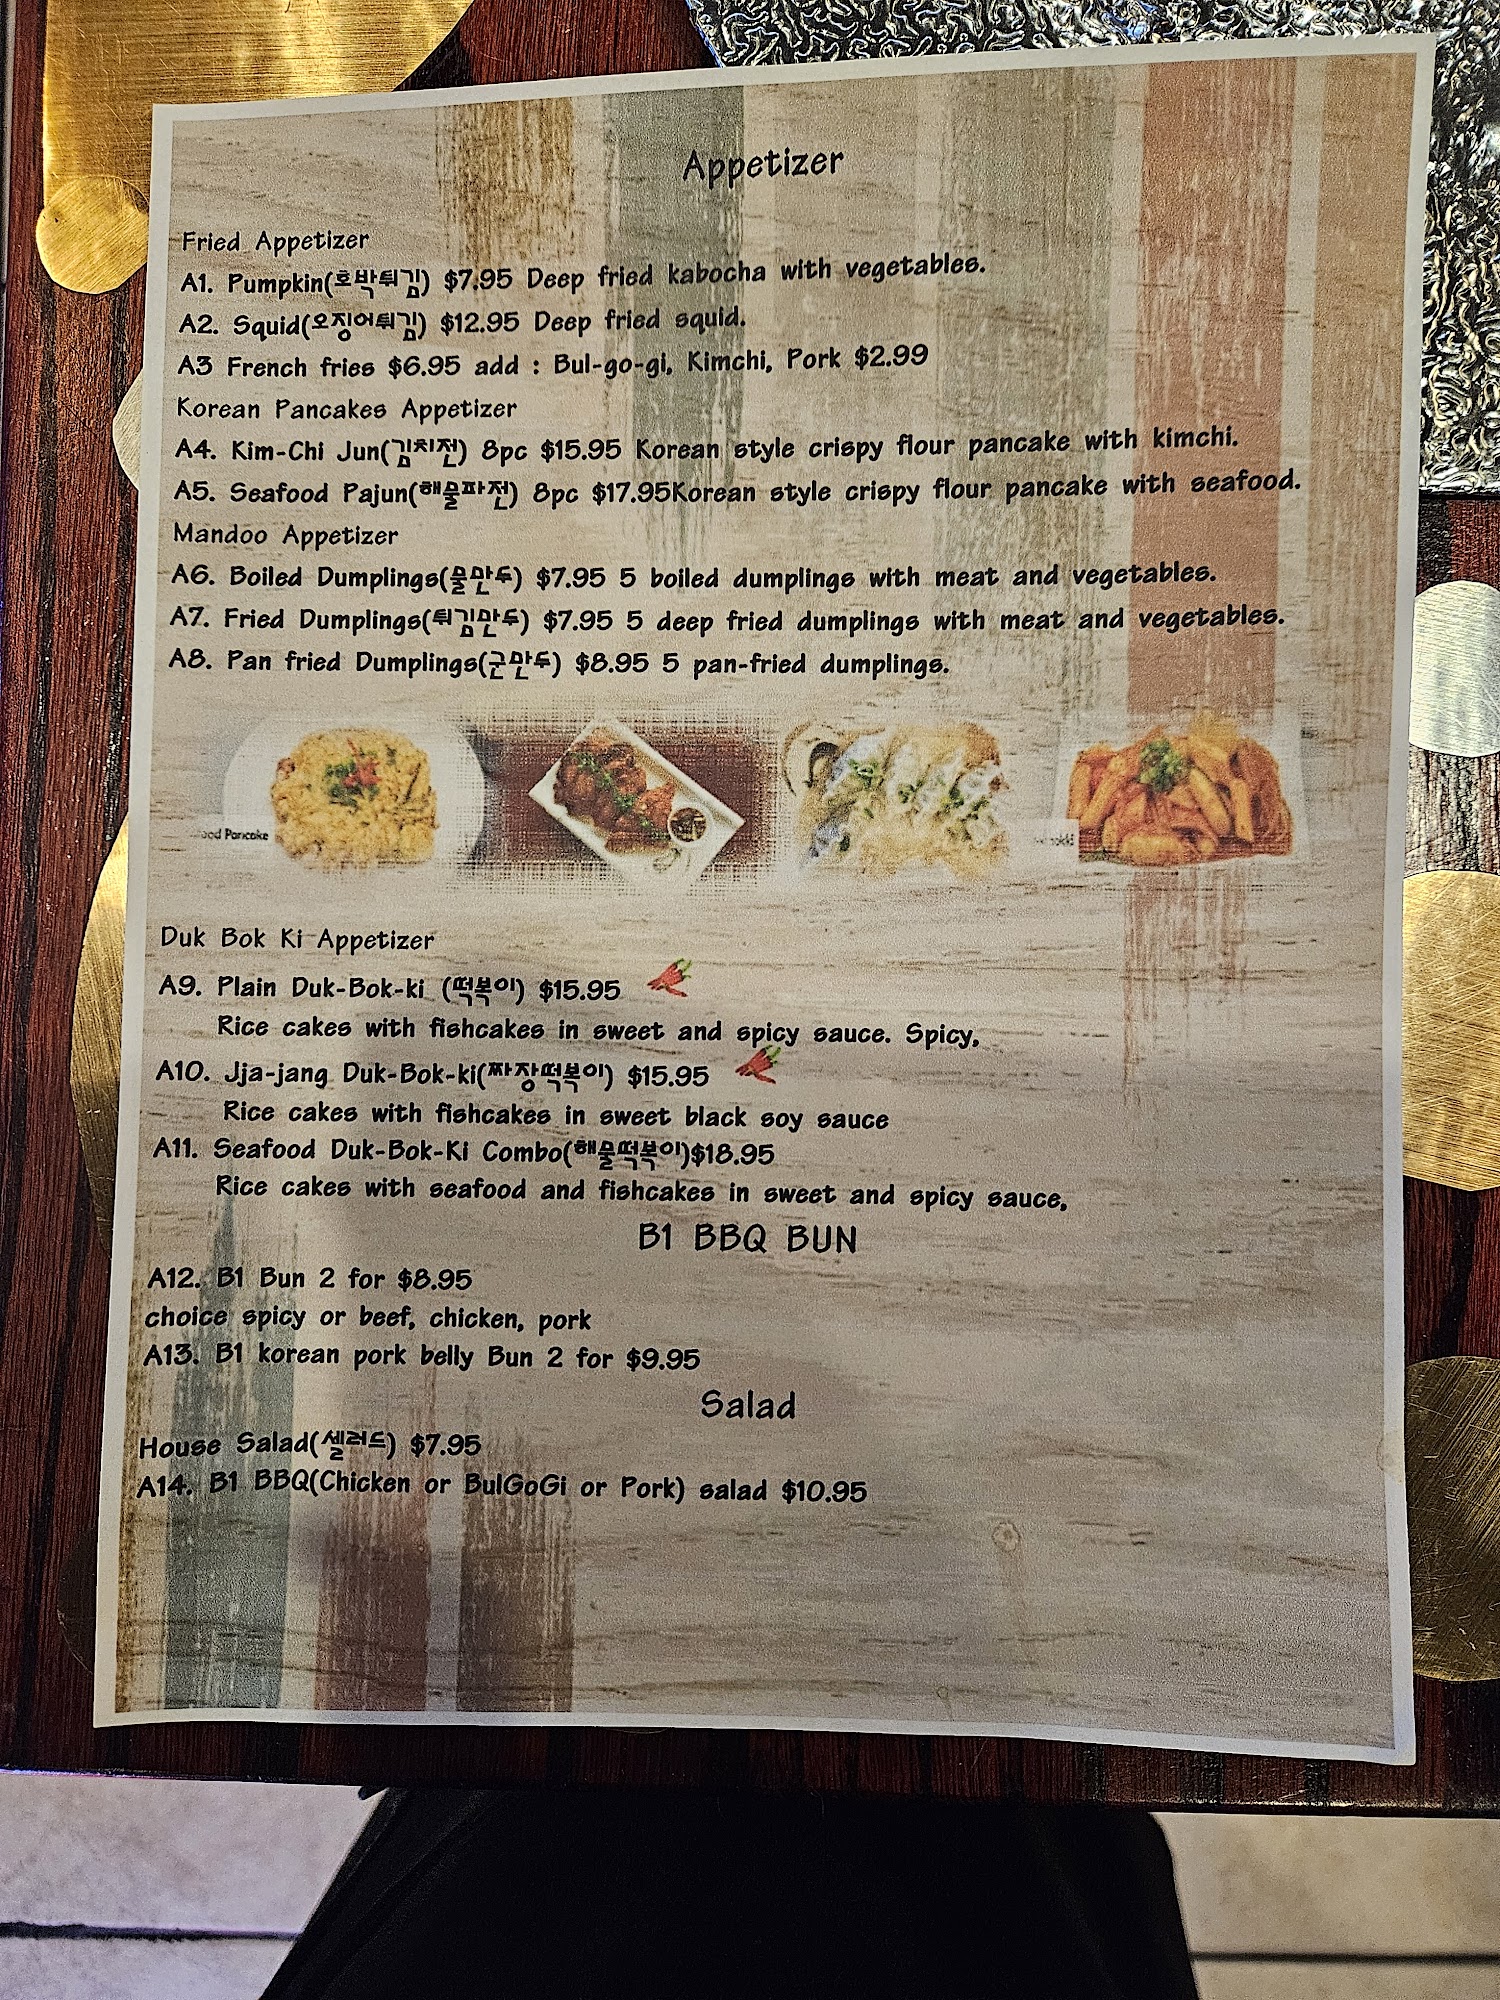 Appetizer
Fried Appetizer
A1. Pumpkin(호박튀김) $7.95 Deep fried kabocha with vegetables.
A2. Squid(오징어튀김) $12.95 Deep fried squid.
A3 French fries $6.95 add : Bul-go-gi, Kimchi, Pork $2.99
Korean Pancakes Appetizer
A4. Kim-Chi Jun(김치전) 8pc $15.95 Korean style crispy flour pancake with kimchi.
A5. Seafood Pajun(해물파전) 8pc $17.95Korean style crispy flour pancake with seafood.
Mandoo Appetizer
A6. Boiled Dumplings(물만두) $7.95 5 boiled dumplings with meat and vegetables.
A7. Fried Dumplings(튀김만두) $7.95 5 deep fried dumplings with meat and vegetables.
A8. Pan fried Dumplings(군만두) $8.95 5 pan-fried dumplings.
Pancake
Duk Bok Ki Appetizer
A9. Plain Duk-Bok-ki (떡볶이) $15.95
Rice cakes with fishcakes in sweet and spicy sauce. Spicy,
A10. Jja-jang Duk-Bok-ki(짜장떡볶이) $15.95
Rice cakes with fishcakes in sweet black soy sauce
A11. Seafood Duk-Bok-Ki Combo(해물떡볶이)$18.95
Rice cakes with seafood and fishcakes in sweet and spicy sauce,
B1 BBQ BUN
A12. B1 Bun 2 for $8.95
choice spicy or beef, chicken, pork
A13. B1 korean pork belly Bun 2 for $9.95
Salad
House Salad(셀러드) $7.95
A14. B1 BBQ(Chicken or BulGoGi or Pork) salad $10.95